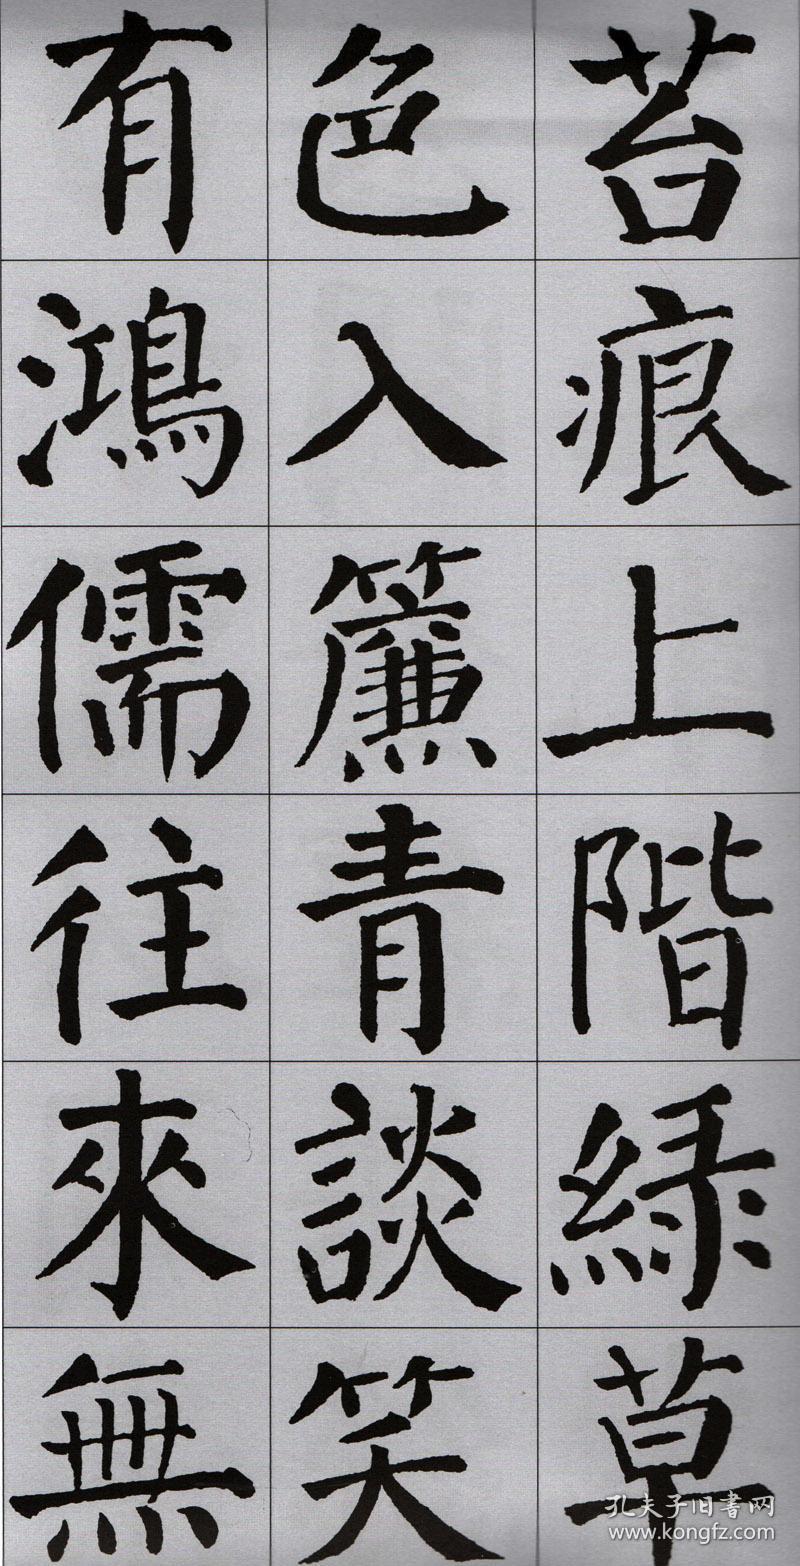 苔痕上階緑草
色入簾青談笑
有鴻儒往來無
孔夫子旧書网
www.kongfz.com